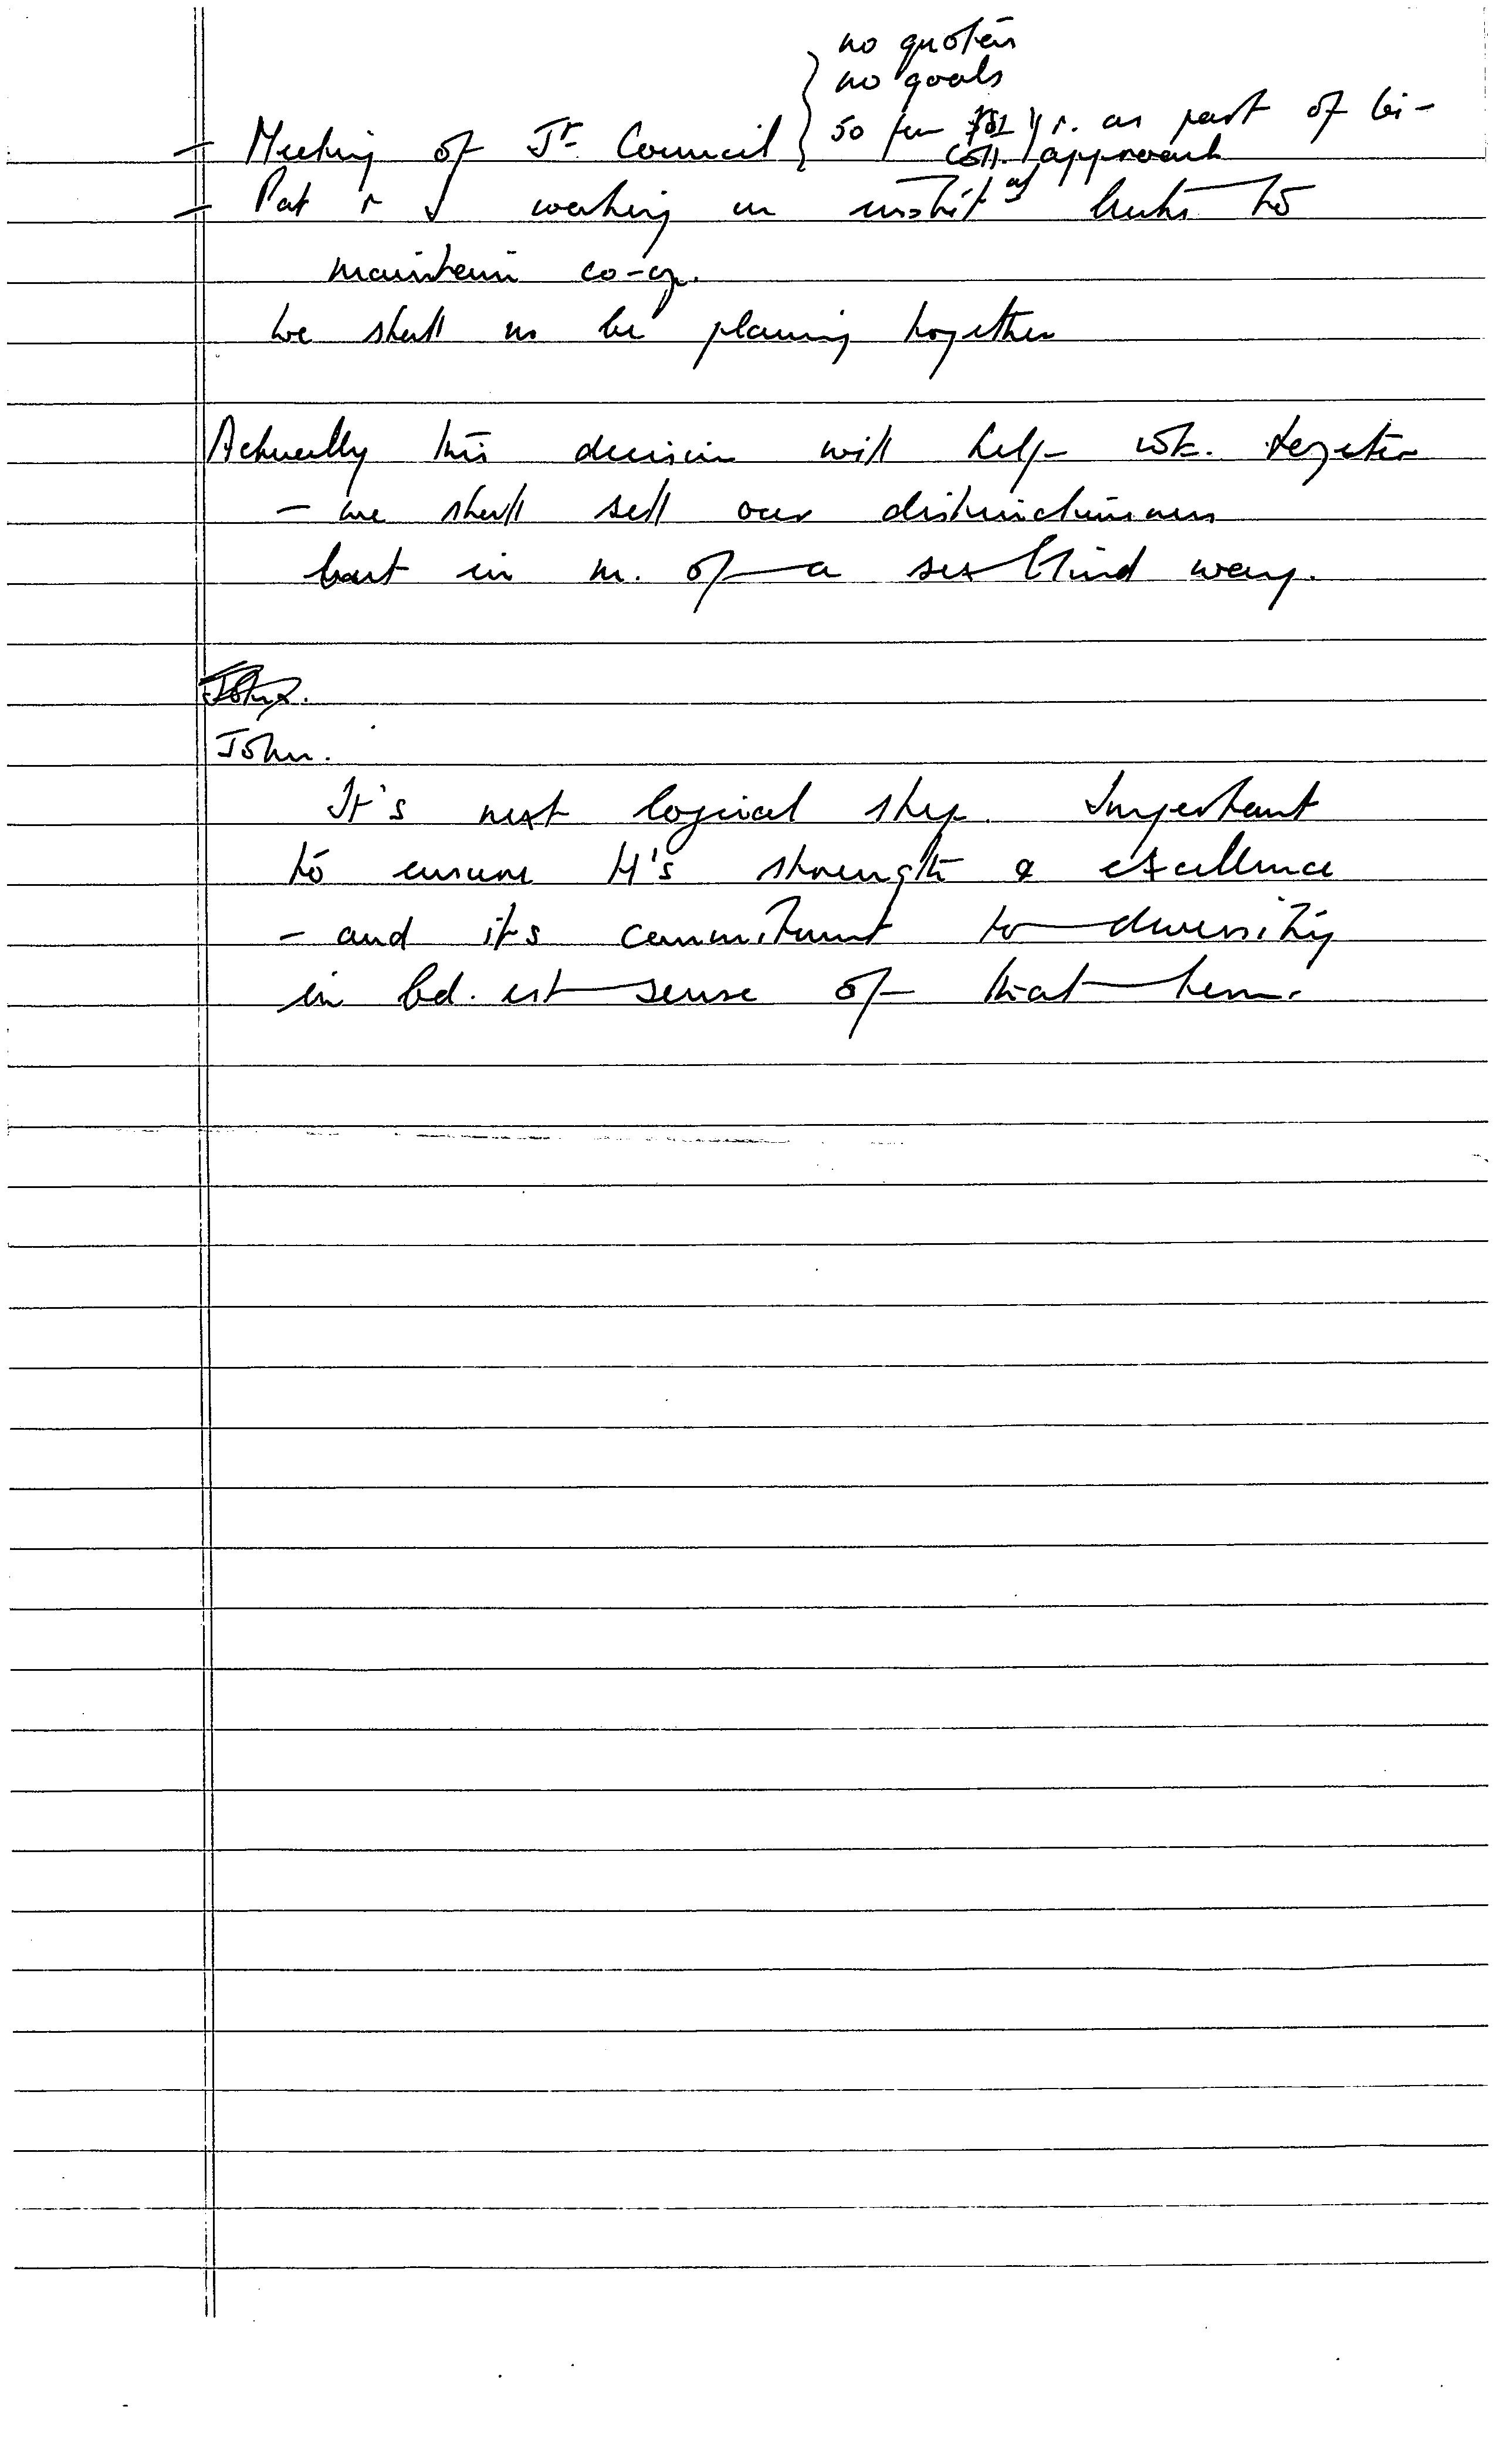 no quotas
no goals
50 fem 1st yr. as part of bi-
coll. approach
- Meeting of Jt Council
- Pat & I working on instit al links to
maintain co-op.
we shall be planning together
Actually this decision will help wk. together
- we shall sell our distinctiveness
but in m. of a sex blind way.
John.
It's next logical step. Important
to ensure H's strength & excellence
- and its commitment to diversity
in bd. est sense of that term.